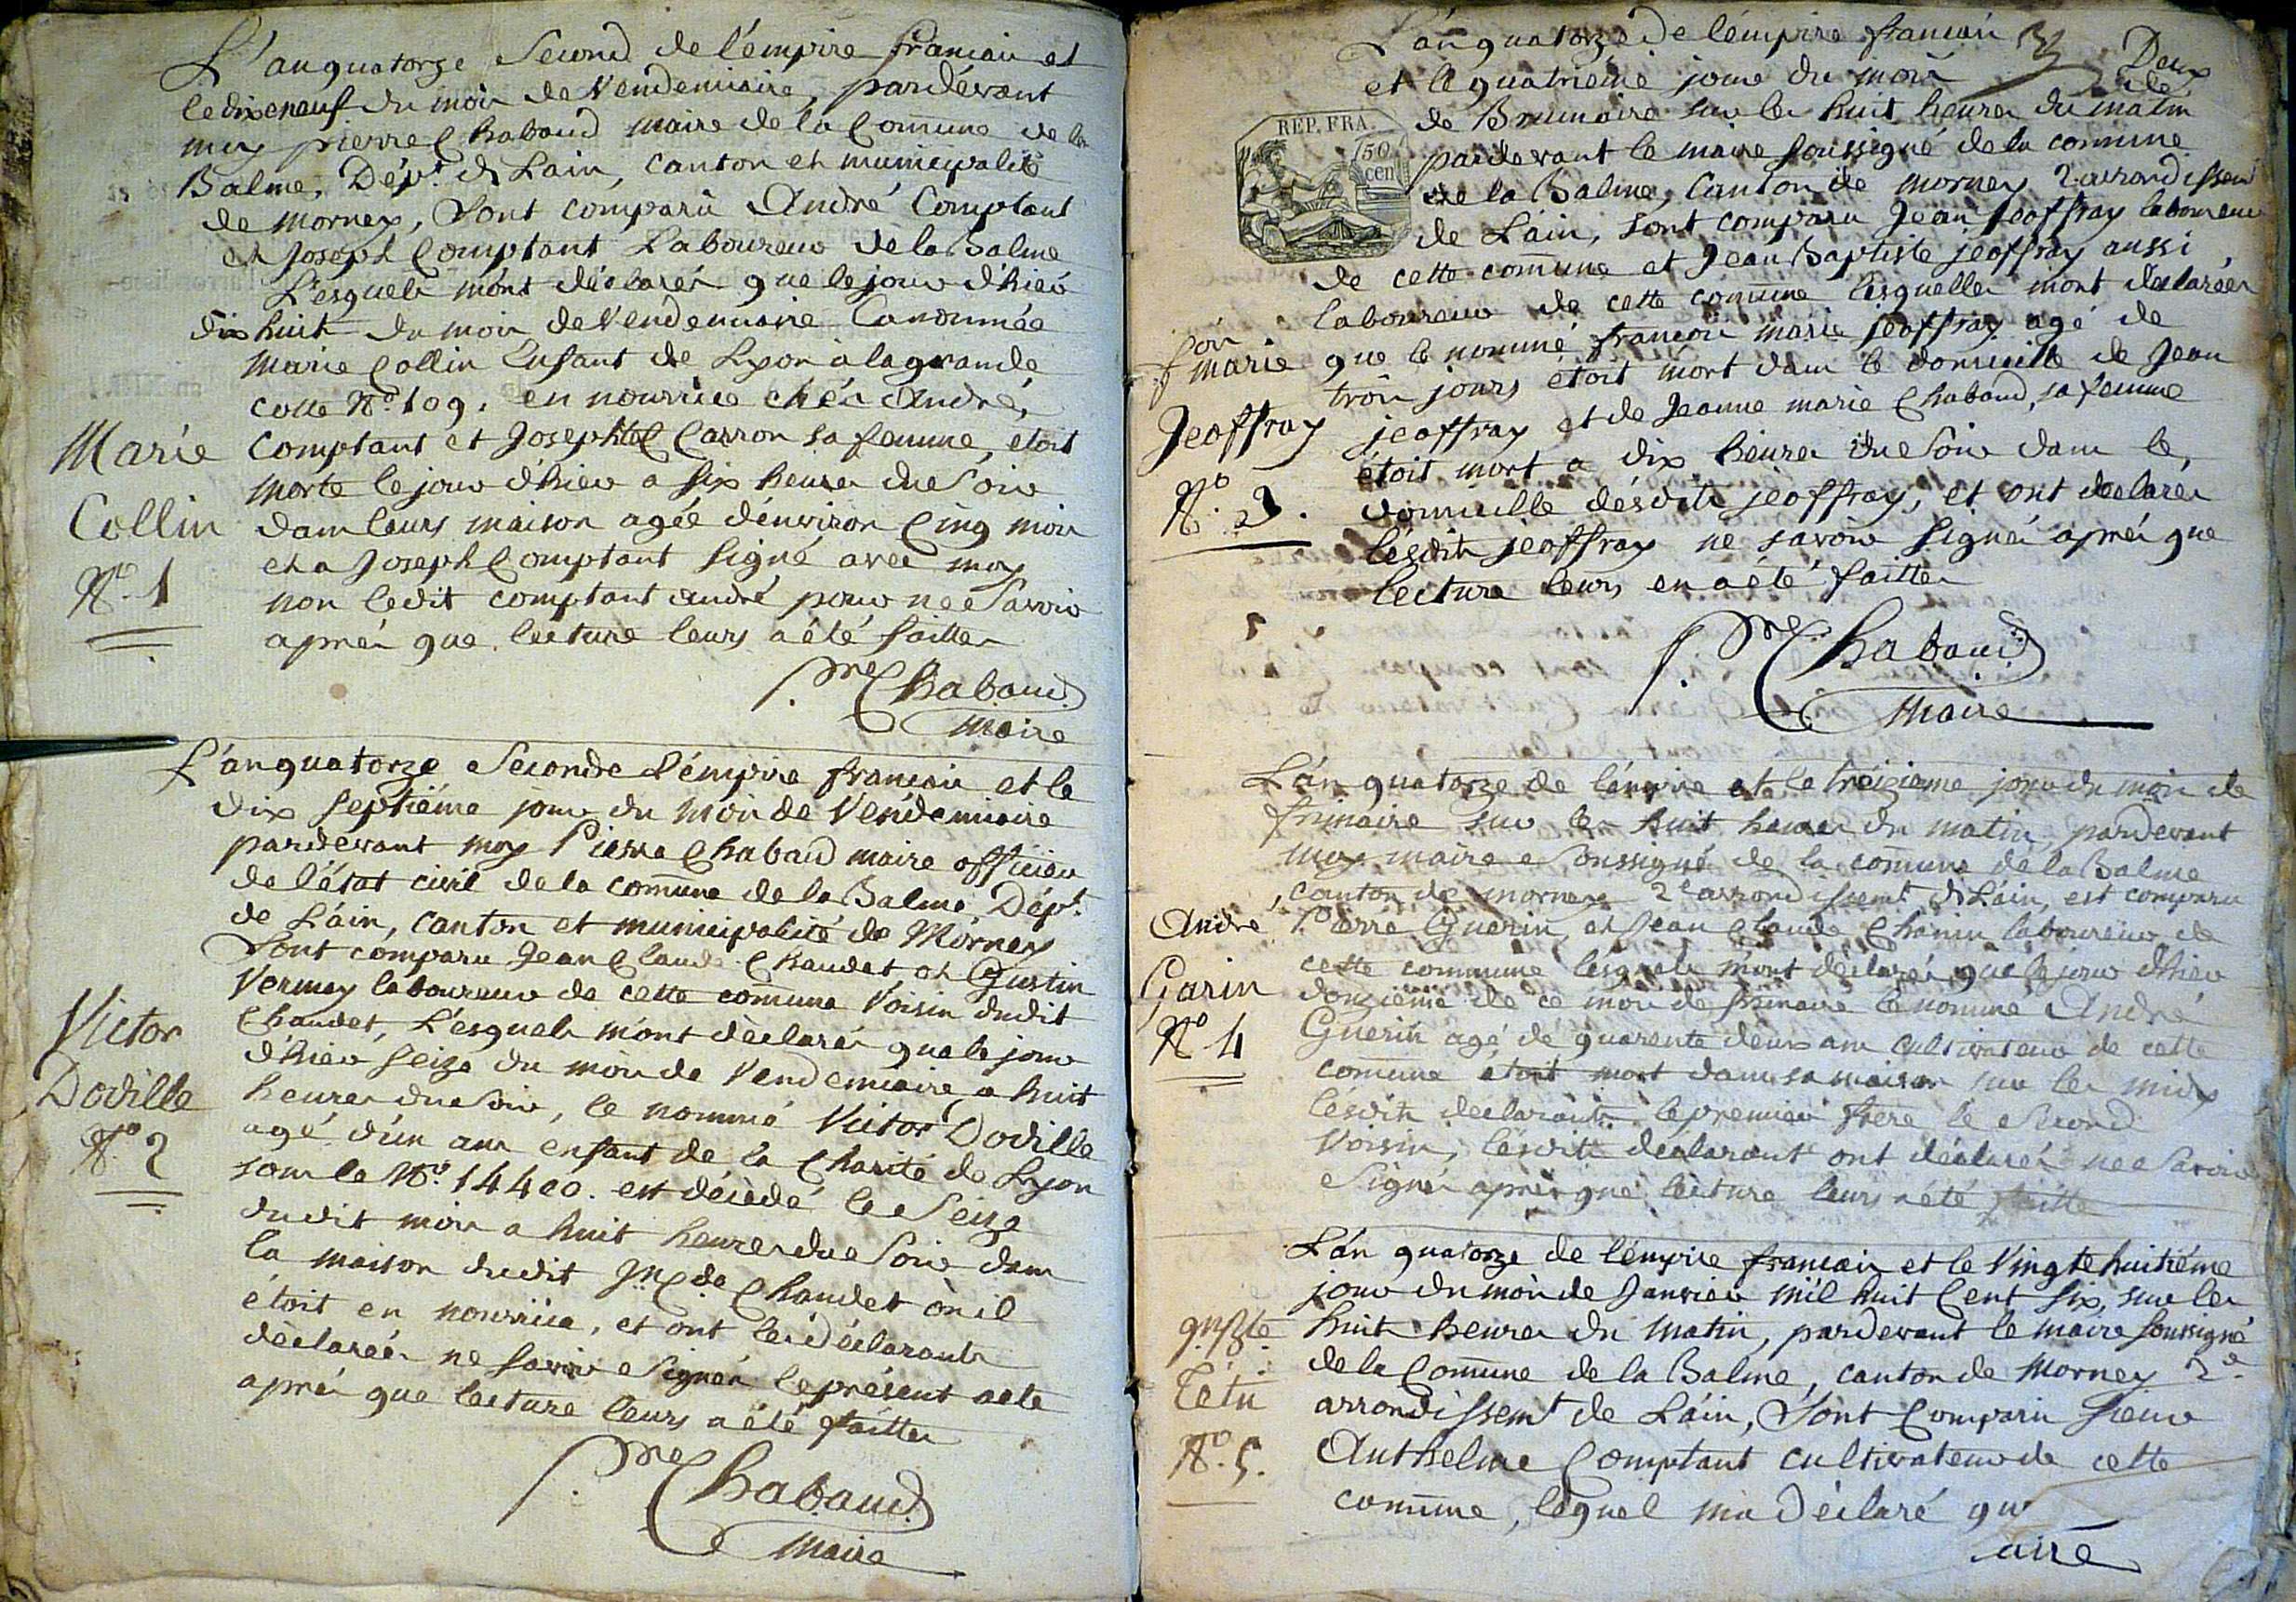 L'an quatorze Second de l'émpire francais et
le dix eneuf du mois de Vendemiaire, pardévant
moy pierre Chabaud maire de la Commune de la
Balme, Dépt. de Lain, canton et municipalité
de mornex, Sont comparu André Comptant
et Joseph Comptant Laboureur de la Balme
L'esquels m'ont déclarés que le jour d'hier
dix huit du mois de Vendemiaire la nommée
Marie Collin Enfant de Lyon à la grande
colle No. 109, en nourrice chés André,
Marie
Comptant et Josephte Carron sa femme, étoit
morte le jour d'hier a six heures du Soir
Collin
dans leurs maison agée d'environ Cinq mois
No. 1
et a Joseph Comptant Signé avec moy
non ledit comptant andré pour ne Savoir
aprés que lecture leurs a été faittes
P.re Chabaud
Maire
L'an quatorze Second de l'émpire francais et le
dix septiéme jour du mois de Vendemiaire
pardevant moy Pierre Chabaud maire officier
de l'état civil de la commune de la Balme Dépt.
de L'ain, canton et municipalité de Mornex
Sont comparu Jean Claude Chaudet et Gustin
Vermey laboureur de cette commune Voisin dudit
Victor
Chaudet, L'esquels m'ont déclarés que le jour
d'hier seize du mois de Vendemiaire a huit
Dodille
heures du Soir, le nommé Victor Dodille
No. 2
agé d'un ans enfant de la Charité de Lyon
sous le No. 14400. est décédé le Seize
dudit mois a huit heures du Soir dans
la maison dudit Jn. Cde. Chaudet où il
étoit en nourrice, et ont les déclarants
déclarés ne Savoir Signér le présent acte
aprés que lecture leurs a été faittes
P.re Chabaud
Maire
L'an quatorze de l'émpire francais
Deux
et le quatriéme jour du mois
de Brumaire sur les huit heures du matin
REP. FRA.
50
cen
pardevant le maire Soussigné de la commune
de la Balme, Canton de mornex 2 arrondissem
de L'ain, sont comparu Jean Jeoffray laboureur
de cette commune et Jean Baptiste jeoffray aussi
laboureur de cette commune lesquelles m'ont declarées
marie
que le nommé francois marie jeoffray agé de
trois jours étoit mort dans le domicille de Jean
Jeoffray
jeoffray et de Jeanne marie Chabaud, sa femme
étoit mort a dix heures du Soir dans le,
No. 3.
domicille désdits jeoffray, et ont declarés
lésdits jeoffray ne savoir Signér aprés que
lecture leurs en a été faittes
P.re Chabaud
Maire
L'an quatorze de l'émpire et le treizieme jour du mois de
frimaire sur les huit heures du matin, pardevant
moy maire Soussigné de la commune de la Balme
canton de mornex 2e arrondissemt de L'ain, est comparu
André
Pierre Guerin, et Jean Claude Chanin laboureur de
cette commune lésquels m'ont déclarés que le jour d'hier
Garin
douzieme de ce mois de frimaire le nommé André
No. 4
Guerin agé de quarente deux ans cultivateur de cette
commune étoit mort dans sa maison sur les midy
lésdits declarants le premier frere le Second
Voisin, lésdits declarant ont déclarés ne Savoir
Signér aprés que lecture leurs a été faitte
L'an quatorze de l'émpire francais et le Vingt huitiéme
jour du mois de Janvier mil huit Cent Six, sur les
huit heures du matin, pardevant le maire Soussigné
de la Commune de la Balme, canton de Mornex 2e
Tétu
arrondissemt de L'ain, Sont Comparu Sieur
No. 5.
Anthelme Comptant cultivateur de cette
commune, léquel ma Déclaré qu
aire